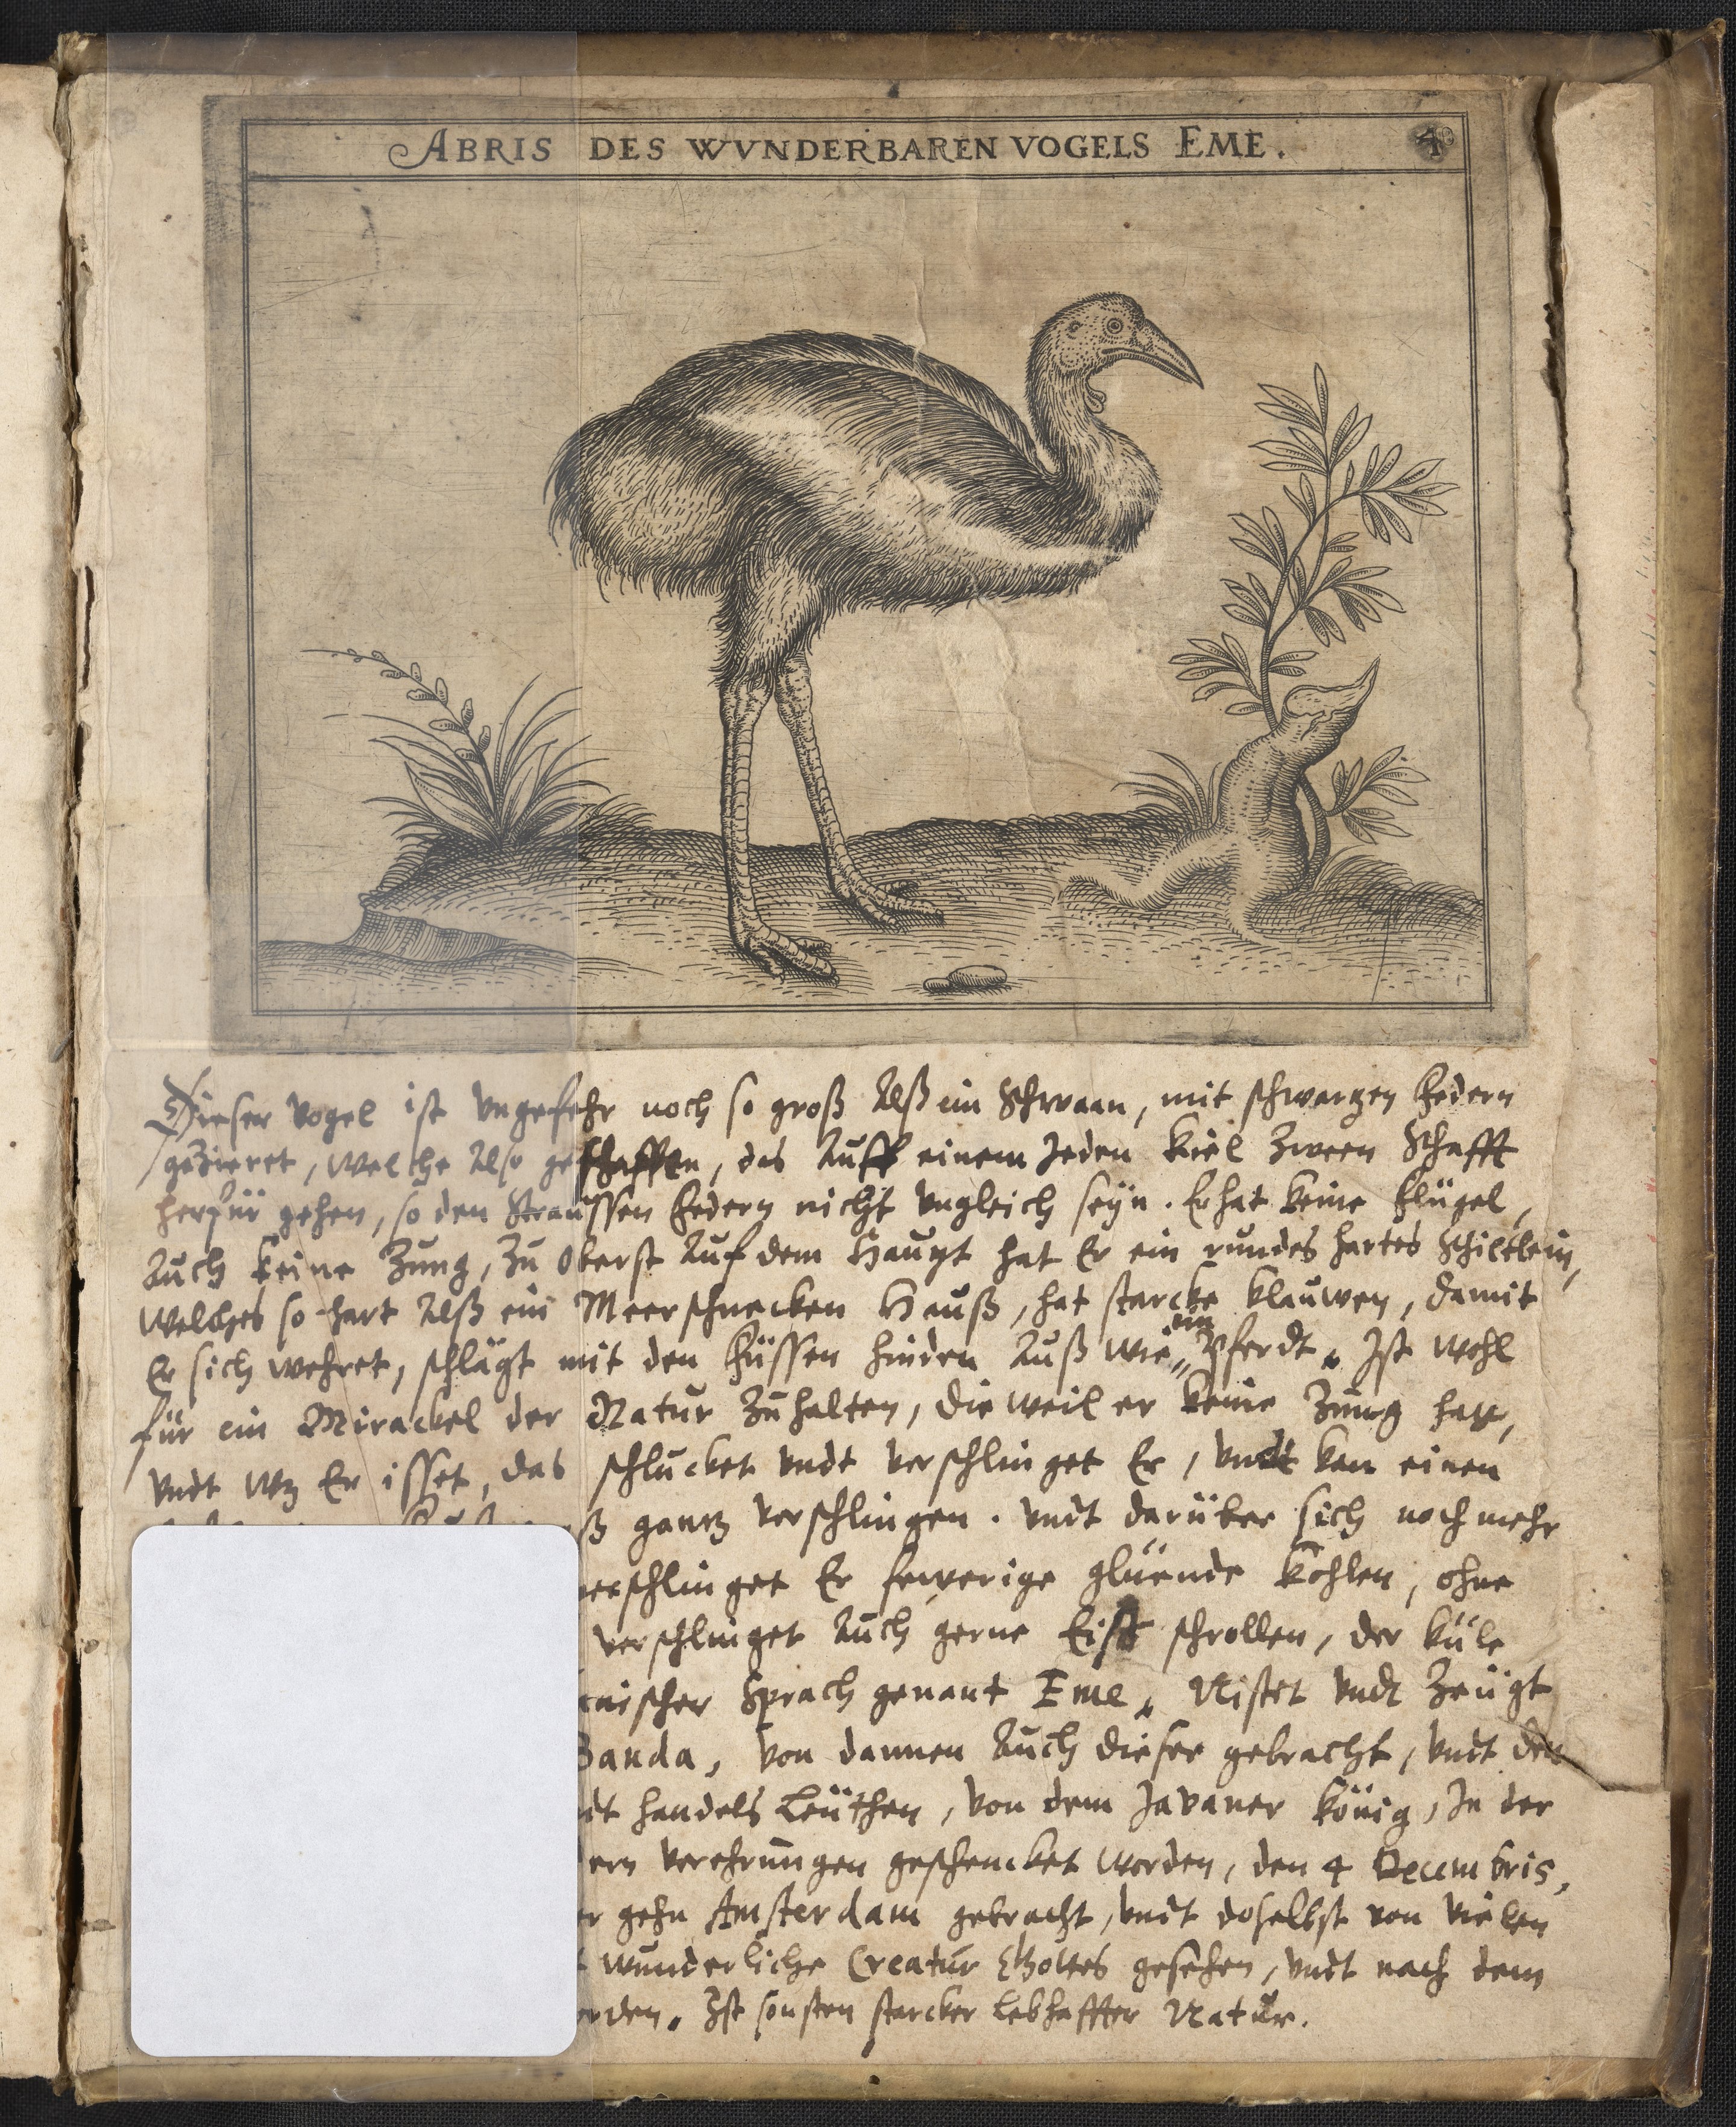 ABRIS DES WVNDERBAREN VOGELS EME.
Dieser Vogel ist vngefehr noch so groß Alß ein Schwaan, mit schwartzen Federn
gezieret, welche Also geschaffen, das Auff einem Jeden Kiel Zween Schafft
herfür gehen, so den Straussen Federn nicht vngleich seÿn. Er hat keine Flügel,
Auch keine Zung, Zu Oberst Auf dem Haupt hat Er ein rundes hartes Schiltlein,
Welches so hart Alß ein Meerschnecken Hauß, hat starcke Klauwen, damit
Er sich wehret, schlägt mit den Füssen hinden Auß wie ein Pferdt. Ist wohl
für ein Mirackel der Natur Zu halten, die weil er keine Zung hatt,
vndt wz Er isset, das schlucket vndt verschlinget Er, vndt kan einen
gantz verschlingen. vndt darüber sich noch mehr
verschlinget Er fewerige gluënde Kohlen, ohne
verschlinget Auch gerne Eiß schrollen, der küle
nischer Sprach genant Eme. Nistet vndt Zeügt
Banda, von dannen Auch dieser gebracht, vndt den
dt handels Leüthen, von dem Javaner König, In der
ern verehrungen geschencket worden, den 4 Decembris,
er gehn Amsterdam gebracht, vndt doselbst von vielen
wunderliche Creatur Gottes gesehen, vndt nach dem
orden. Ist sonsten starcker Lebhaffter Natur.